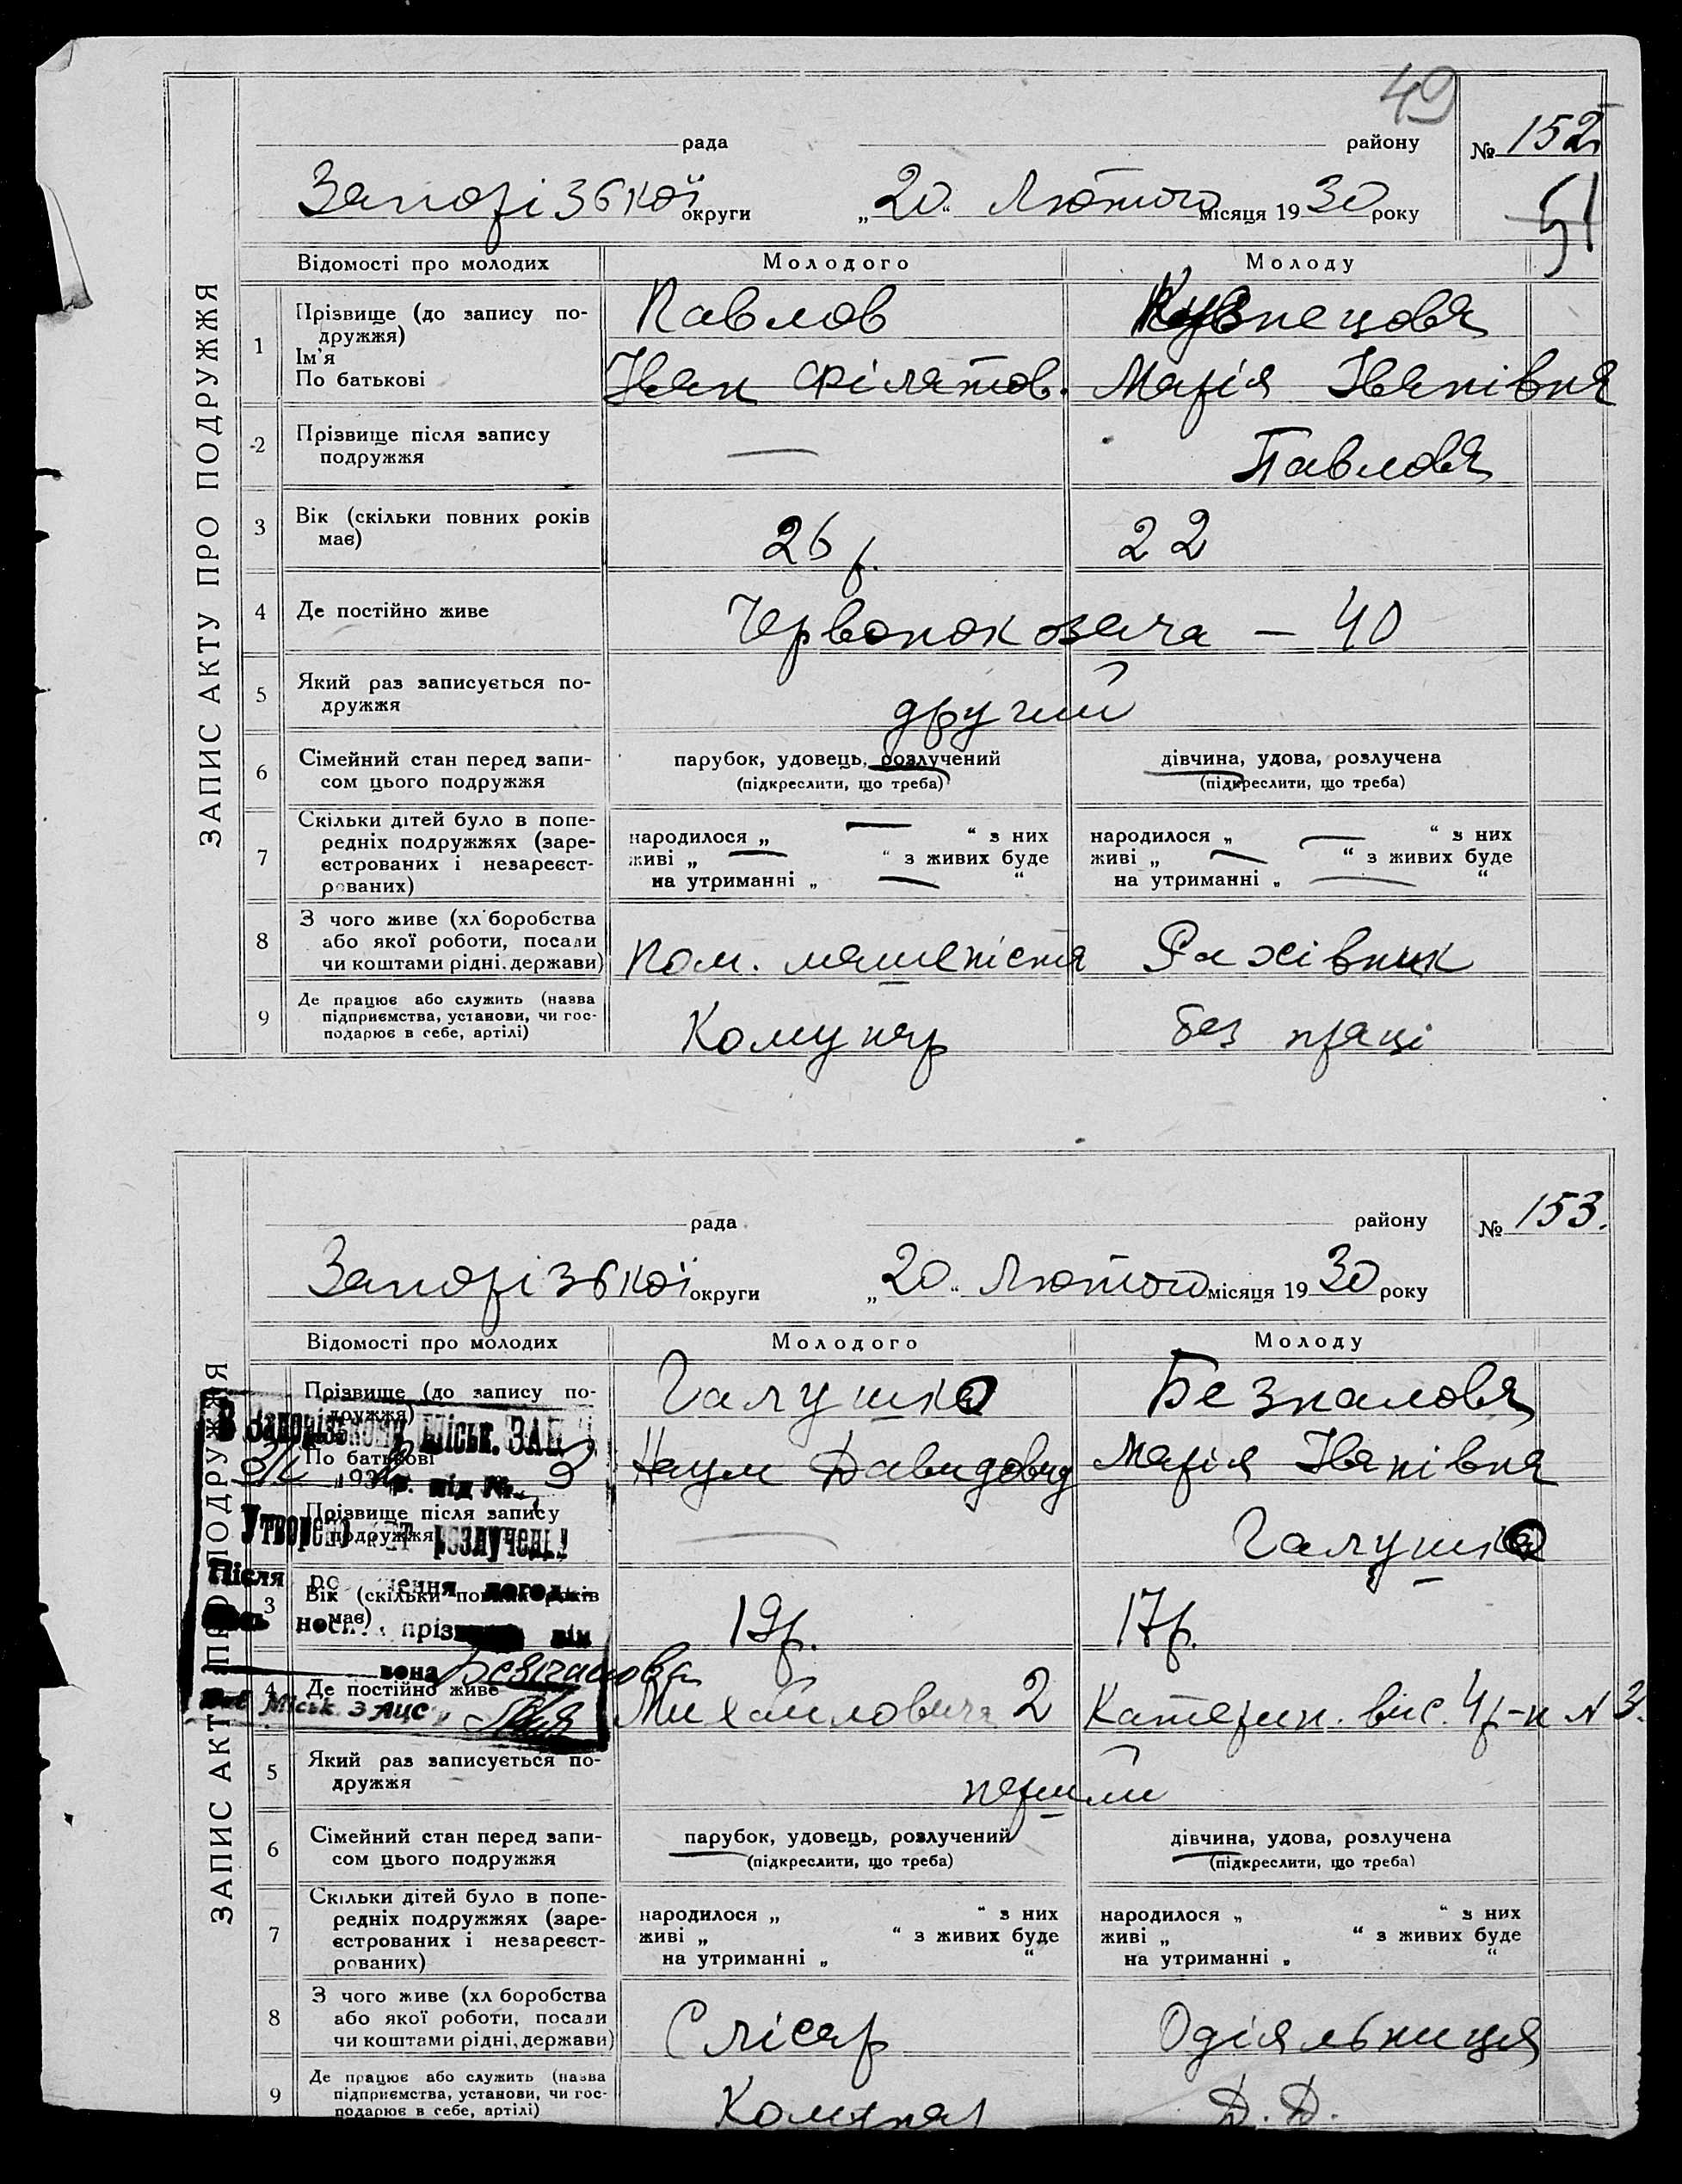 49
рада району № 152
Запорізької округи „20“ Лютого місяця 1930 року
51
ЗАПИС АКТУ ПРО ПОДРУЖЖЯ
Відомості про молодих Молодого Молоду
1 Прізвище (до запису подружжя) Павлов Кузнецова
Ім'я
По батькові Іван Філатов. Марія Іванівна
2 Прізвище після запису подружжя — Павлова
3 Вік (скільки повних років має) 26 р. 22
4 Де постійно живе Червонокозача — 40
5 Який раз записується подружжя другий
6 Сімейний стан перед записом цього подружжя парубок, удовець, розлучений дівчина, удова, розлучена
(підкреслити, що треба) (підкреслити, що треба)
7 Скільки дітей було в попередніх подружжях (зареєстрованих і незареєстрованих)
народилося „ — “ з них народилося „ — “ з них
живі „ — “ з живих буде живі „ — “ з живих буде
на утриманні „ — “ на утриманні „ — “
8 З чого живе (хліборобства або якої роботи, посади чи коштами рідні, держави) Пом. машиніста Рахівник
9 Де працює або служить (назва підприємства, установи, чи господарює в себе, артілі) Комунар без праці
рада району № 153.
Запорізької округи „20“ Лютого місяця 1930 року
ЗАПИС АКТУ ПРО ПОДРУЖЖЯ
Відомості про молодих Молодого Молоду
Прізвище (до запису подружжя) Галушко Безналова
По батькові Наум Давидович Марія Іванівна
Прізвище після запису подружжя — Галушко
3 Вік (скільки повних років має) 19 р. 17 р.
4 Де постійно живе Михайловича 2 Катерин. вис. 4 р-н № 3.
В Запорізькому Міськ. ЗАГС
р. під №
Утворено акт розлучення
Після
вона Безналова
Міськ. ЗАЦС
5 Який раз записується подружжя перший
6 Сімейний стан перед записом цього подружжя парубок, удовець, розлучений дівчина, удова, розлучена
(підкреслити, що треба) (підкреслити, що треба)
7 Скільки дітей було в попередніх подружжях (зареєстрованих і незареєстрованих)
народилося „ “ з них народилося „ “ з них
живі „ “ з живих буде живі „ “ з живих буде
на утриманні „ “ на утриманні „ “
8 З чого живе (хліборобства або якої роботи, посади чи коштами рідні, держави) Слісар Одіяльниця
9 Де працює або служить (назва підприємства, установи, чи господарює в себе, артілі) Комунар Д. Д.